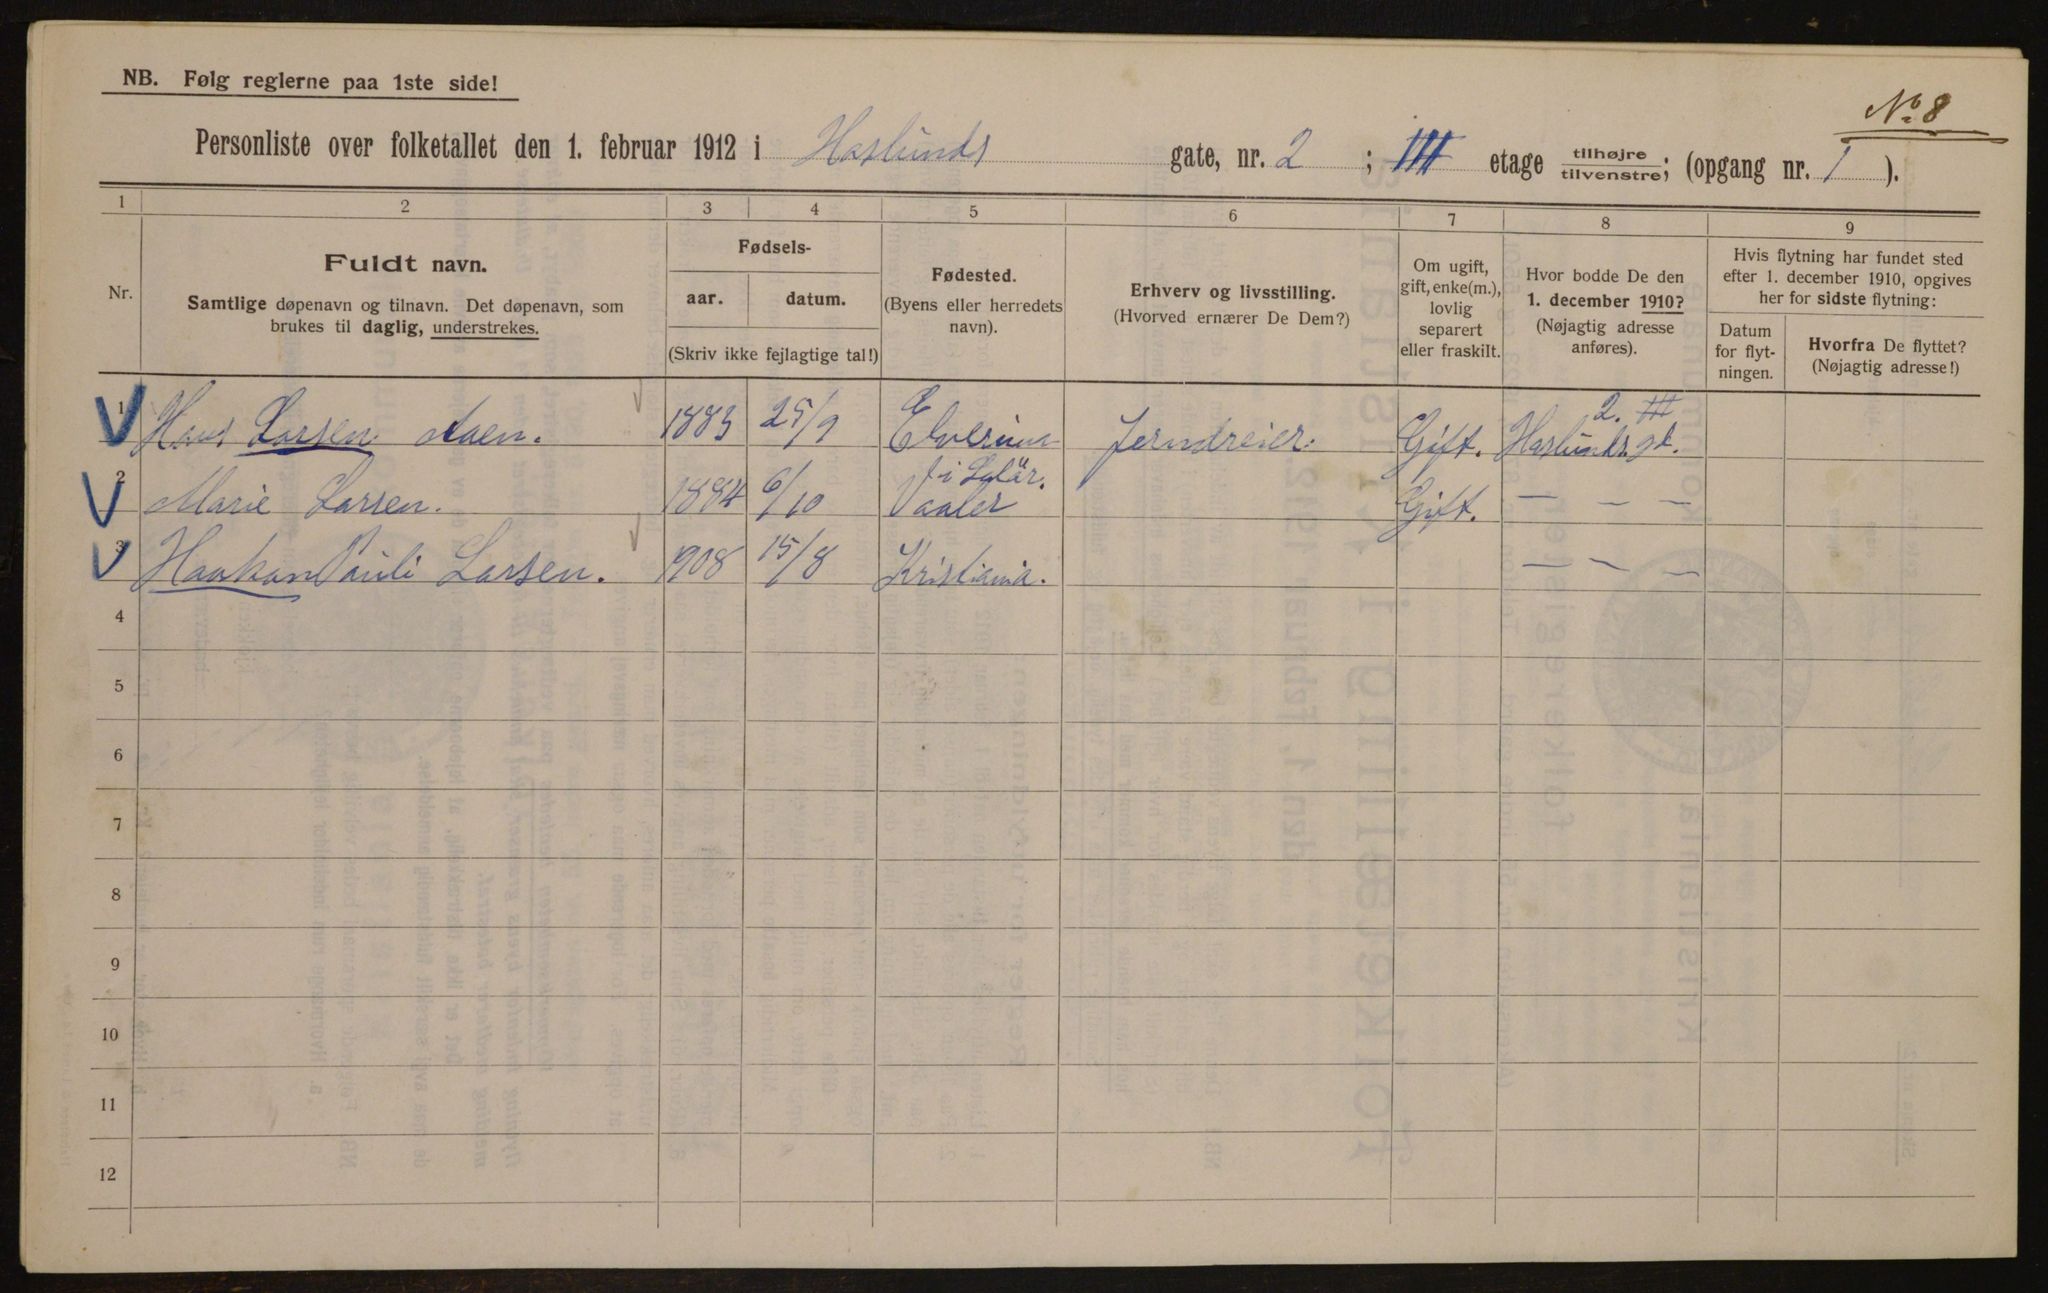 NB. Følg reglerne paa 1ste side!
No. 8
Personliste over folketallet den 1. februar 1912 i Haslunds gate, nr. 2 ; III etage tilhøjre tilvenstre; (opgang nr. 1 ).
1 2 3 4 5 6 7 8 9
Nr.
Fuldt navn.
Samtlige døpenavn og tilnavn. Det døpenavn, som
brukes til daglig, understrekes.
Fødsels-
aar. datum.
(Skriv ikke fejlagtige tal!)
Fødested.
(Byens eller herredets
navn).
Erhverv og livsstilling.
(Hvorved ernærer De Dem?)
Om ugift,
gift, enke(m.),
lovlig
separert
eller fraskilt.
Hvor bodde De den
1. december 1910?
(Nøjagtig adresse
anføres).
Hvis flytning har fundet sted
efter 1. december 1910, opgives
her for sidste flytning:
Datum
for flyt-
ningen.
Hvorfra De flyttet?
(Nøjagtig adresse!)
2. III
1 Hans Larsen Aaen. 1883 25/9 Elverum Jerndreier. Gift. Haslunds. gt.
i Solør.
2 Marie Larsen. 1884 6/10 Vaaler Gift. — — —
3 Haakon Pauli Larsen. 1908 15/8 Kristiania. — — —
4
5
6
7
8
9
10
11
12